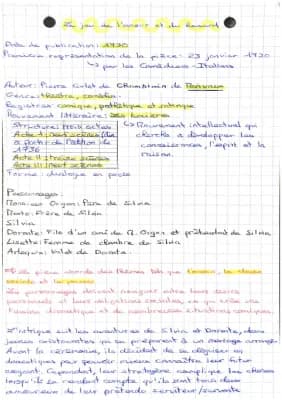 Le jeu de l'amour et du hasard
Date de publication: 1730
Première représentation de la pièce: 23 janvier 1730
↳ par les Comédiens-Italiens
Auteur: Pierre Carlet de Chamblain de Marivaux
Genre: théâtre, comédie
Registres: comique, pathétique et
Mouvement littéraire: Les lumières
Structure: trois actes
↳ Mouvement intellectuel qui
Acte I:
cherche à développer les
à partir de l'édition de
connaissances, l'esprit et la
1736
raison.
Acte II: treize scènes
Acte III: neuf scènes
Forme: dialogue en prose
Personnages:
Monsieur Orgon: Père de Silvia
Mario: Frère de Silvia
Silvia
Dorante: Fils d'un ami de M. Orgon et prétendant de Silvia
Lisette: Femme de chambre de Silvia
Arlequin: Valet de Dorante
pièce aborde des thèmes tels que l'amour, la classe
sociale et
Les personnages doivent naviguer entre leurs désirs
personnels et leurs obligations sociales, ce qui crée une
tension dramatique et de nombreuses situations comiques.
L'intrigue suit les aventures de Silvia et Dorante, deux
jeunes aristocrates qui se préparent à un mariage arrangé.
Avant la cérémonie, ils décident de se déguiser en
domestiques pour pouvoir mieux connaître leur futur
conjoint. Cependant, leur stratagème complique les choses
lorsqu'ils se rendent compte qu'ils sont tous deux
amoureux de leur prétendu serviteur/suivante